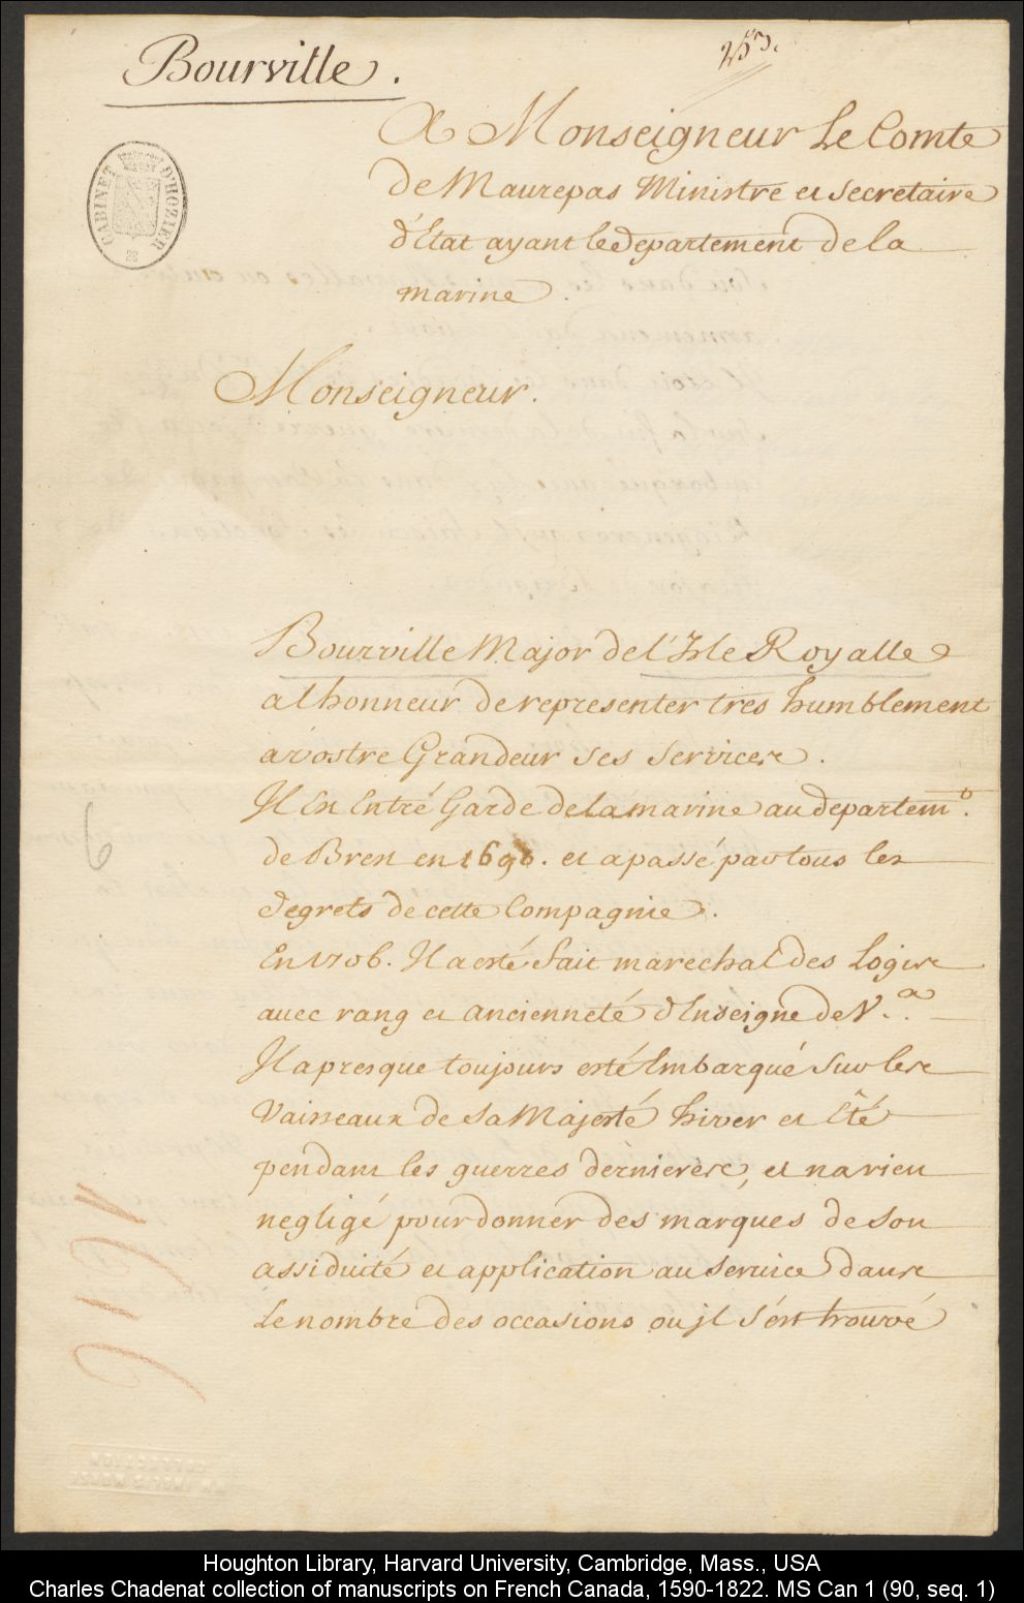 Bourville.
A Monseigneur Le Comte
de Maurepas Ministre et secretaire
d'Etat ayant le departement de la
marine.
CABINET D'HOZIER
Monseigneur.
Bourville Major de l'Isle Royalle
a l honneur de representer tres humblement
a vostre Grandeur ses services.
Il Est Entré Garde de la marine au departemt.
de Brest en 1690. et a passé par tous les
degrets de cette Compagnie.
En 1706. Il a esté fait marechal des Logis
avec rang et ancienneté d'Enseigne de V.au
Il a presque toujours esté Embarqué sur les
Vaisseaux de sa Majesté hiver et Eté
pendant les guerres dernieres, et na rien
negligé pour donner des marques de son
assiduité et application au service dans
Le nombre des occasions ou jl s'est trouvé
6
Houghton Library, Harvard University, Cambridge, Mass., USA
Charles Chadenat collection of manuscripts on French Canada, 1590-1822. MS Can 1 (90, seq. 1)